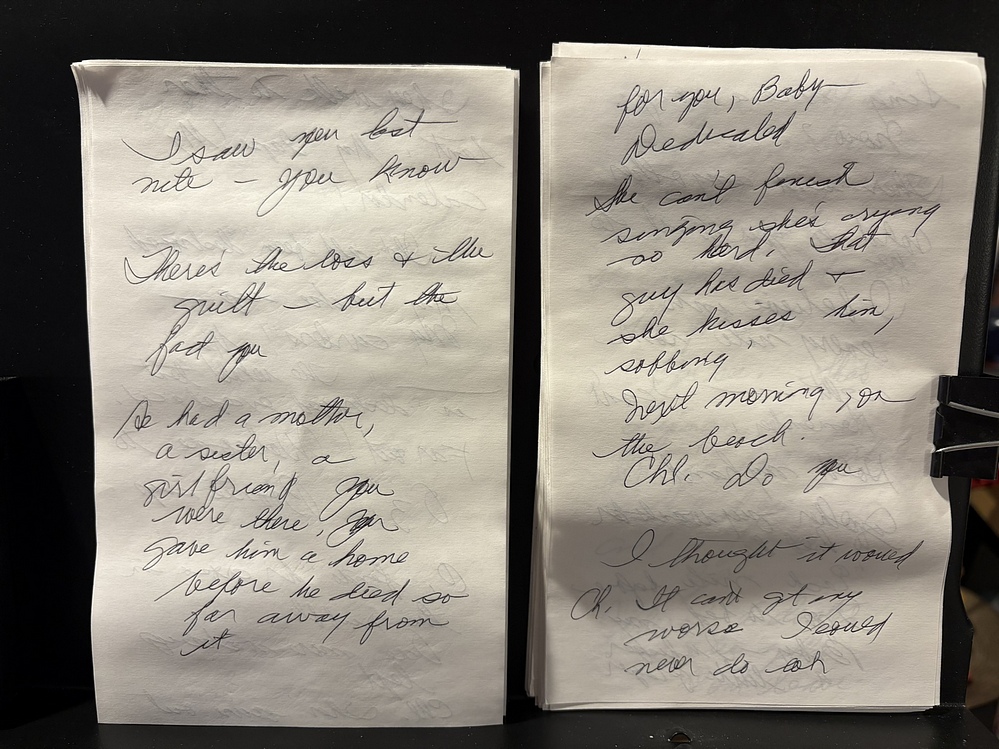 I saw you last
nite – you know
There's the loss & the
guilt – but the
fact you
He had a mother,
a sister, a
girlfriend you
were there, you
gave him a home
before he died so
far away from
it
for you, Baby –
Dedicated
She can't finish
singing she's crying
so hard. That
guy has died &
she kisses him,
sobbing
Next morning, on
the beach.
Chl. Do you
I thought it would
Ch. It can't get any
worse I could
never do